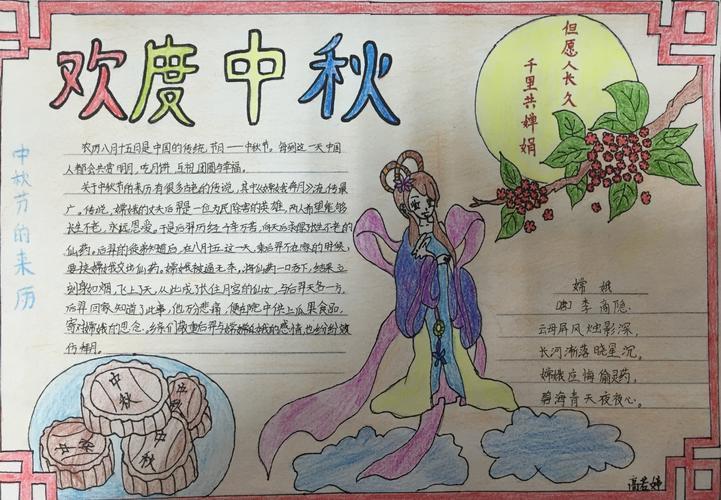 欢度中秋
但愿人长久
千里共婵娟
中秋节的来历
农历八月十五日是中国的传统节日——中秋节。每到这一天中国
人都会共赏明月,吃月饼 互祝团圆与幸福。
关于中秋节的来历有很多古老的传说,其中以嫦娥奔月流传最
广。传说,嫦娥的丈夫后羿是一位为民除害的英雄,两人希望能够
长生不老,永远恩爱。于是后羿历经千辛万苦,向天后求得长生不老的
仙药。后羿的徒弟知道后,在八月十五这一天,乘后羿不在家的时候,
要挟嫦娥交出仙药。嫦娥被逼无奈,将仙药一口吞下,结果立
刻身如烟,飞上了天,从此成了长住月宫的仙女,与后羿天各一方,
后羿回家知道了此事,他万分悲痛,便在院中供上瓜果食品,
寄对嫦娥的思念,乡亲们敬重后羿与嫦娥的感情也纷纷效
仿拜月。
嫦娥
[唐] 李商隐
云母屏风烛影深,
长河渐落晓星沉。
嫦娥应悔偷灵药,
碧海青天夜夜心。
中秋
中秋
中秋
中秋